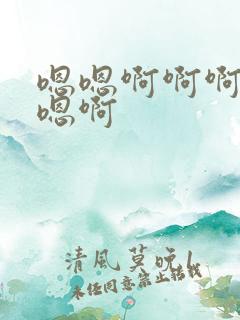 嗯嗯啊啊啊
嗯啊
清風莫晚l
未经同意禁止转载